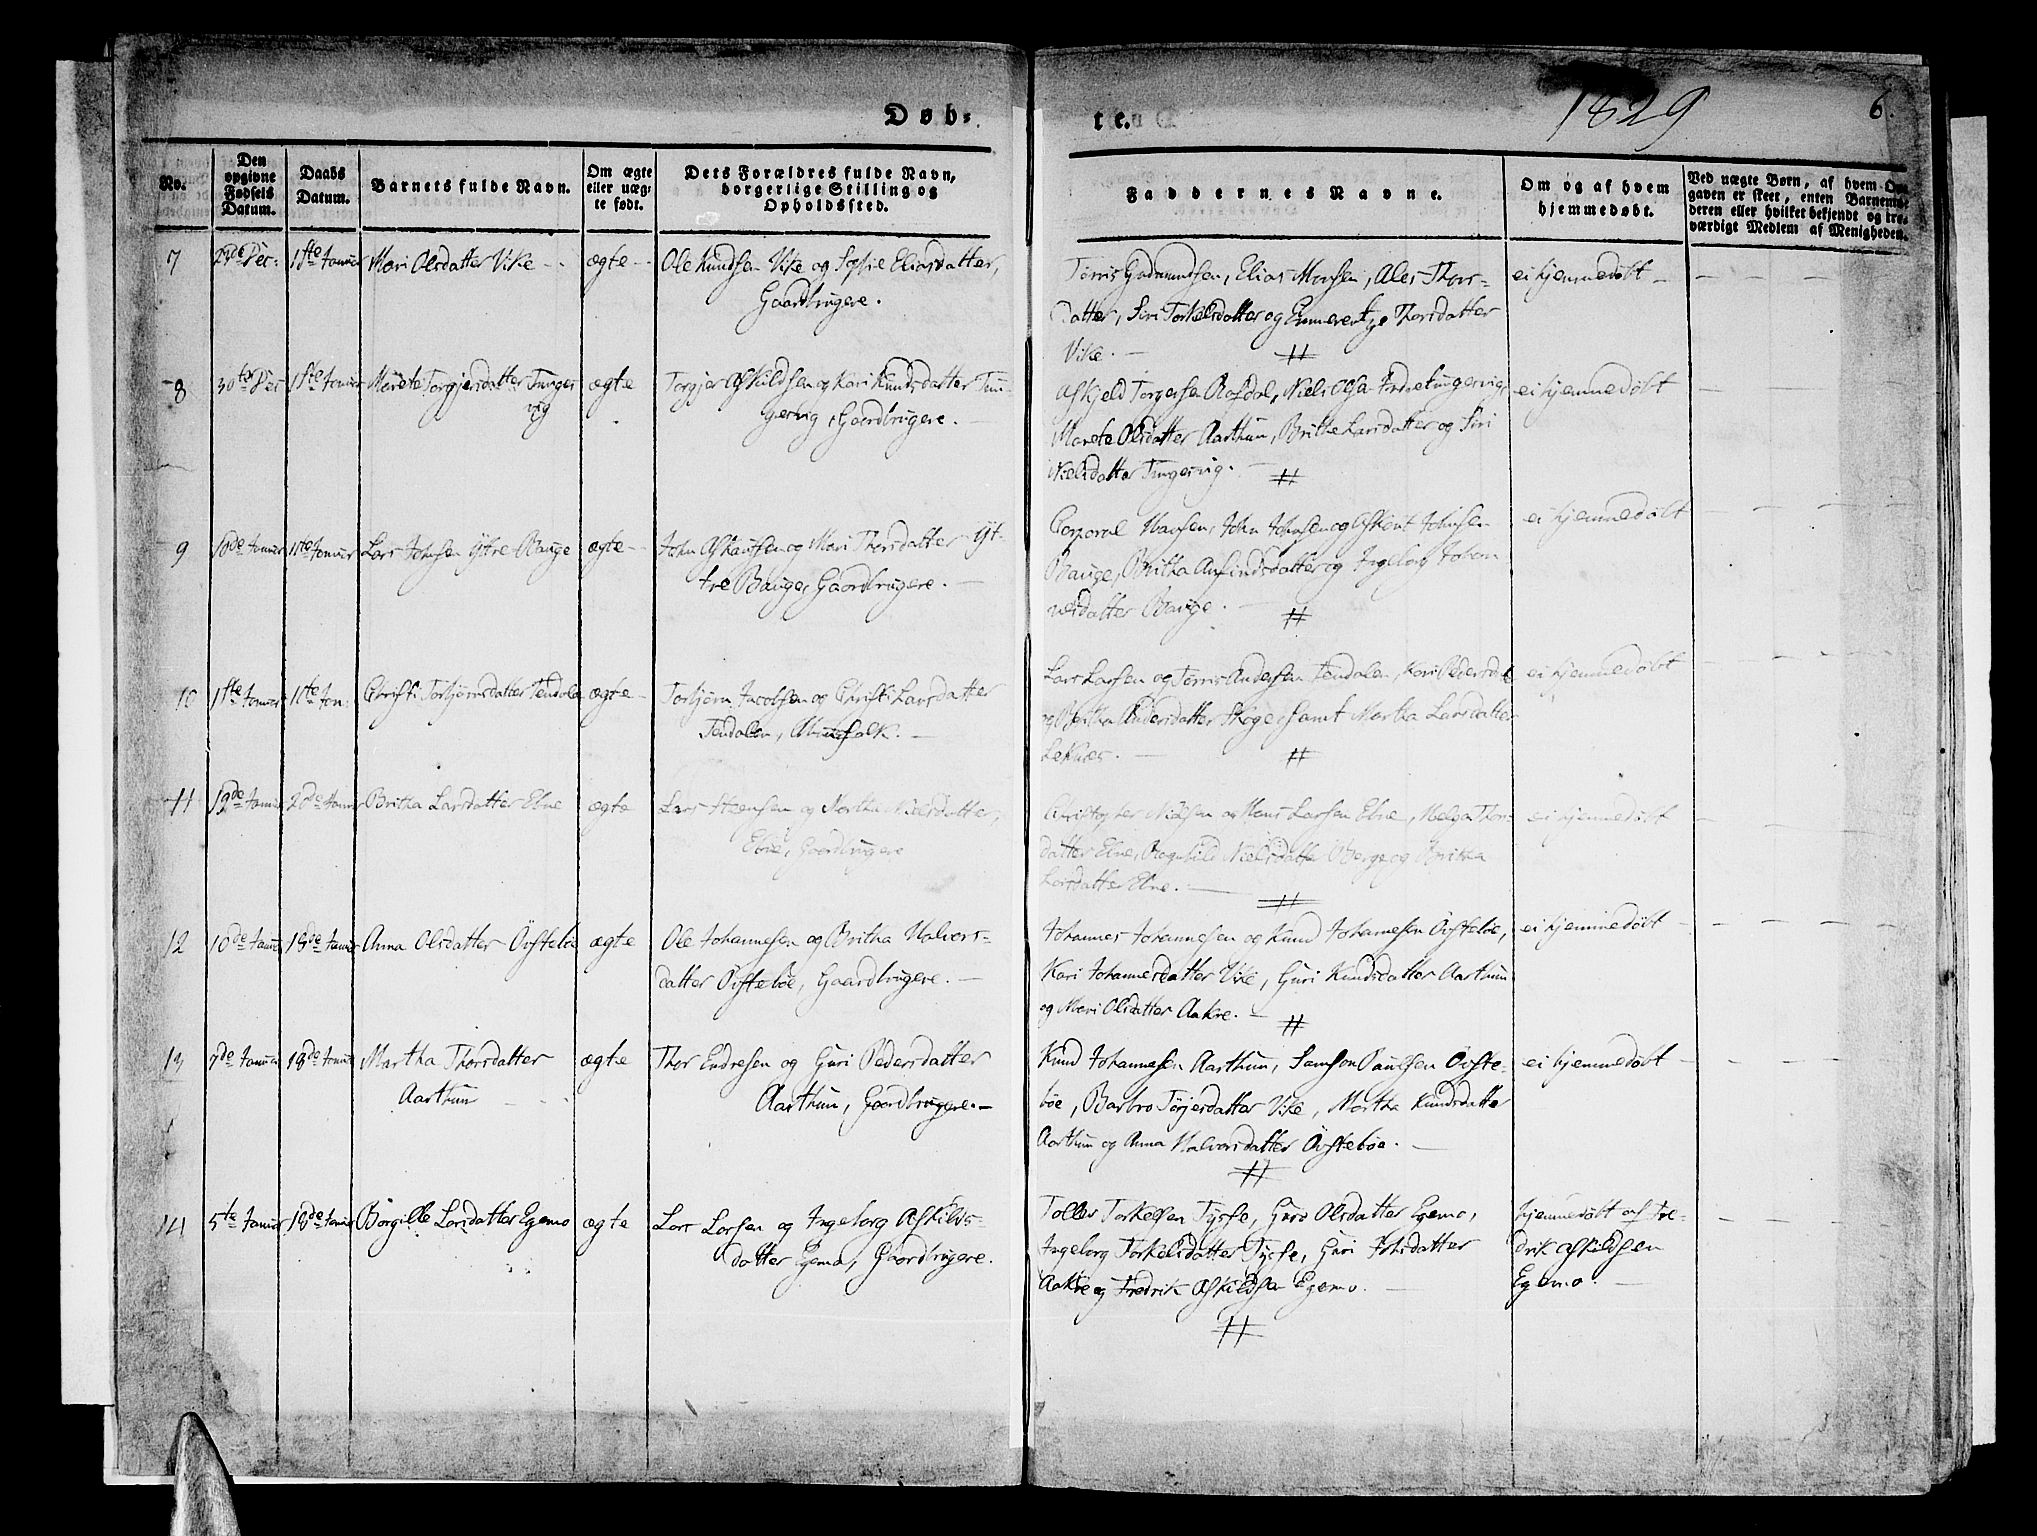 Døb-
te.
1829
6.
No.
Den opgivne Fødsels Datum.
Daabs Datum.
Barnets fulde Navn.
Om ægte eller uægte født.
Dets Forældres fulde Navn, borgerlige Stilling og Opholdssted.
Faddernes Navne.
Om og af hvem hjemmedøbt.
Ved uægte Børn, af hvem Opgaven er skeet, enten Barnemoderen eller hvilket bekjendt og troværdigt Medlem af Menigheden.
7 Dec: 1ste Januar Mari Olsdatter Vike ægte Ole Knudsen Vike og Sofie Eliasdatter,
Gaardbrugere.
Tørris Gudmundsen, Elias Monsen, Ales Thors-
datter, Siri Torkelsdatter og Emmerentze Thorsdatter
Vike.
ei hjemmedøbt
8 30te Dec 1ste Januar Merete Torgjersdatter Tunges
vig
ægte Torgjer Askildsen og Kari Knudsdatter Tun-
gesvig, Gaardbrugere.
Askjeld Torgersen Rafdal, Niels Indretungesvig,
Marete Olsdatter Aarthun, Britha Larsdatter og Siri
Nielsdatter Tungesvig.
ei hjemmedøbt
9 10de Januar 11te Januar Lars Johnsen Ytre Bauge ægte John Askautsen og Mari Thorsdatter Yt-
tre Bauge, Gaardbrugere.
Corporal Hansen, John Johnsen og Askout Johnsen
Bauge, Britha Anfindsdatter og Ingeborg Johan-
nesdatter Bauge.
ei hjemmedøbt
10 1ste Januar 11te Jan: Christi Torbjørnsdatter Tendalen ægte Torbjørn Jacobsen og Christi Larsdatter
Tendalen, Huusfolk.
Lars Larsen og Tørris Andersen Tendalen, Kari Pedersd
og Britha Andersdatter Skoge, samt Martha Larsdatter
Leknes.
ei hjemmedøbt
11 Januar Januar Britha Larsdatter Ebne ægte Lars Steensen og Martha Nielsdatter,
Ebne, Gaardbrugere
Christopher Nielsen og Hans Larsen Ebne, Helga Thors-
datter Ebne, Ragnhild Nielsdatter Berge og Britha
Larsdatter Ebne.
ei hjemmedøbt
12 10de Januar 18de Januar Anna Olsdatter Øvstebøe ægte Ole Johannesen og Britha Halvors-
datter Øvstebøe, Gaardbrugere.
Johannes Johannesen og Knud Johannesen Øvstebøe,
Kari Johannesdatter Vike, Guri Knudsdatter Aarthun
og Mari Olsdatter Aakre.
ei hjemmedøbt
13 7de Januar 18de Januar Martha Thorsdatter
Aarthun
ægte Thor Endresen og Guri Pedersdatter
Aarthun, Gaardbrugere.
Knud Johannesen Aarthun, Samson Paulsen Øvste-
bøe, Barbro Tørjersdatter Vike, Martha Knudsdatter
Aarthun og Anna Halvorsdatter Øvstebøe.
ei hjemmedøbt
14 5te Januar 18de Januar Børgille Larsdatter Egemo ægte Lars Larsen og Ingeborg Askilds-
datter Egemo, Gaardbrugere.
Tolles Torkelsen Tysse, Guro Olsdatter Egemo,
Ingeborg Torkelsdatter Tysse, Guri datter
Aakre og Fredrik Askildsen Egemo.
hjemmedøbt af Fre-
drik Askildsen
Egemo.